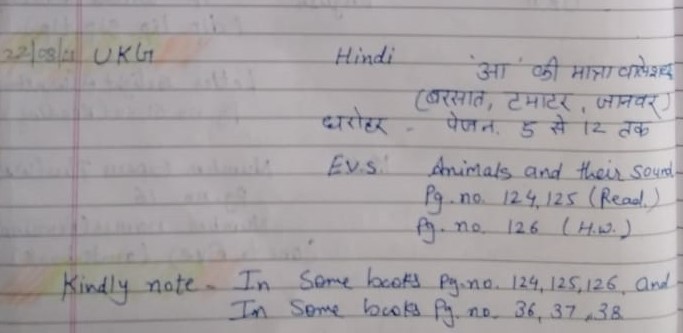 22/08/21 UKG Hindi
'आ' की मात्रा वाले शब्द
(बरसात, टमाटर, जानवर)
धरोहर - पेज न. 5 से 12 तक
E.V.S. Animals and their sound
Pg. no. 124, 125 (Read.)
Pg. no. 126 (H.W.)
Kindly note - In Some books Pg. no. 124, 125, 126, and
In Some books Pg. no. 36, 37, 38